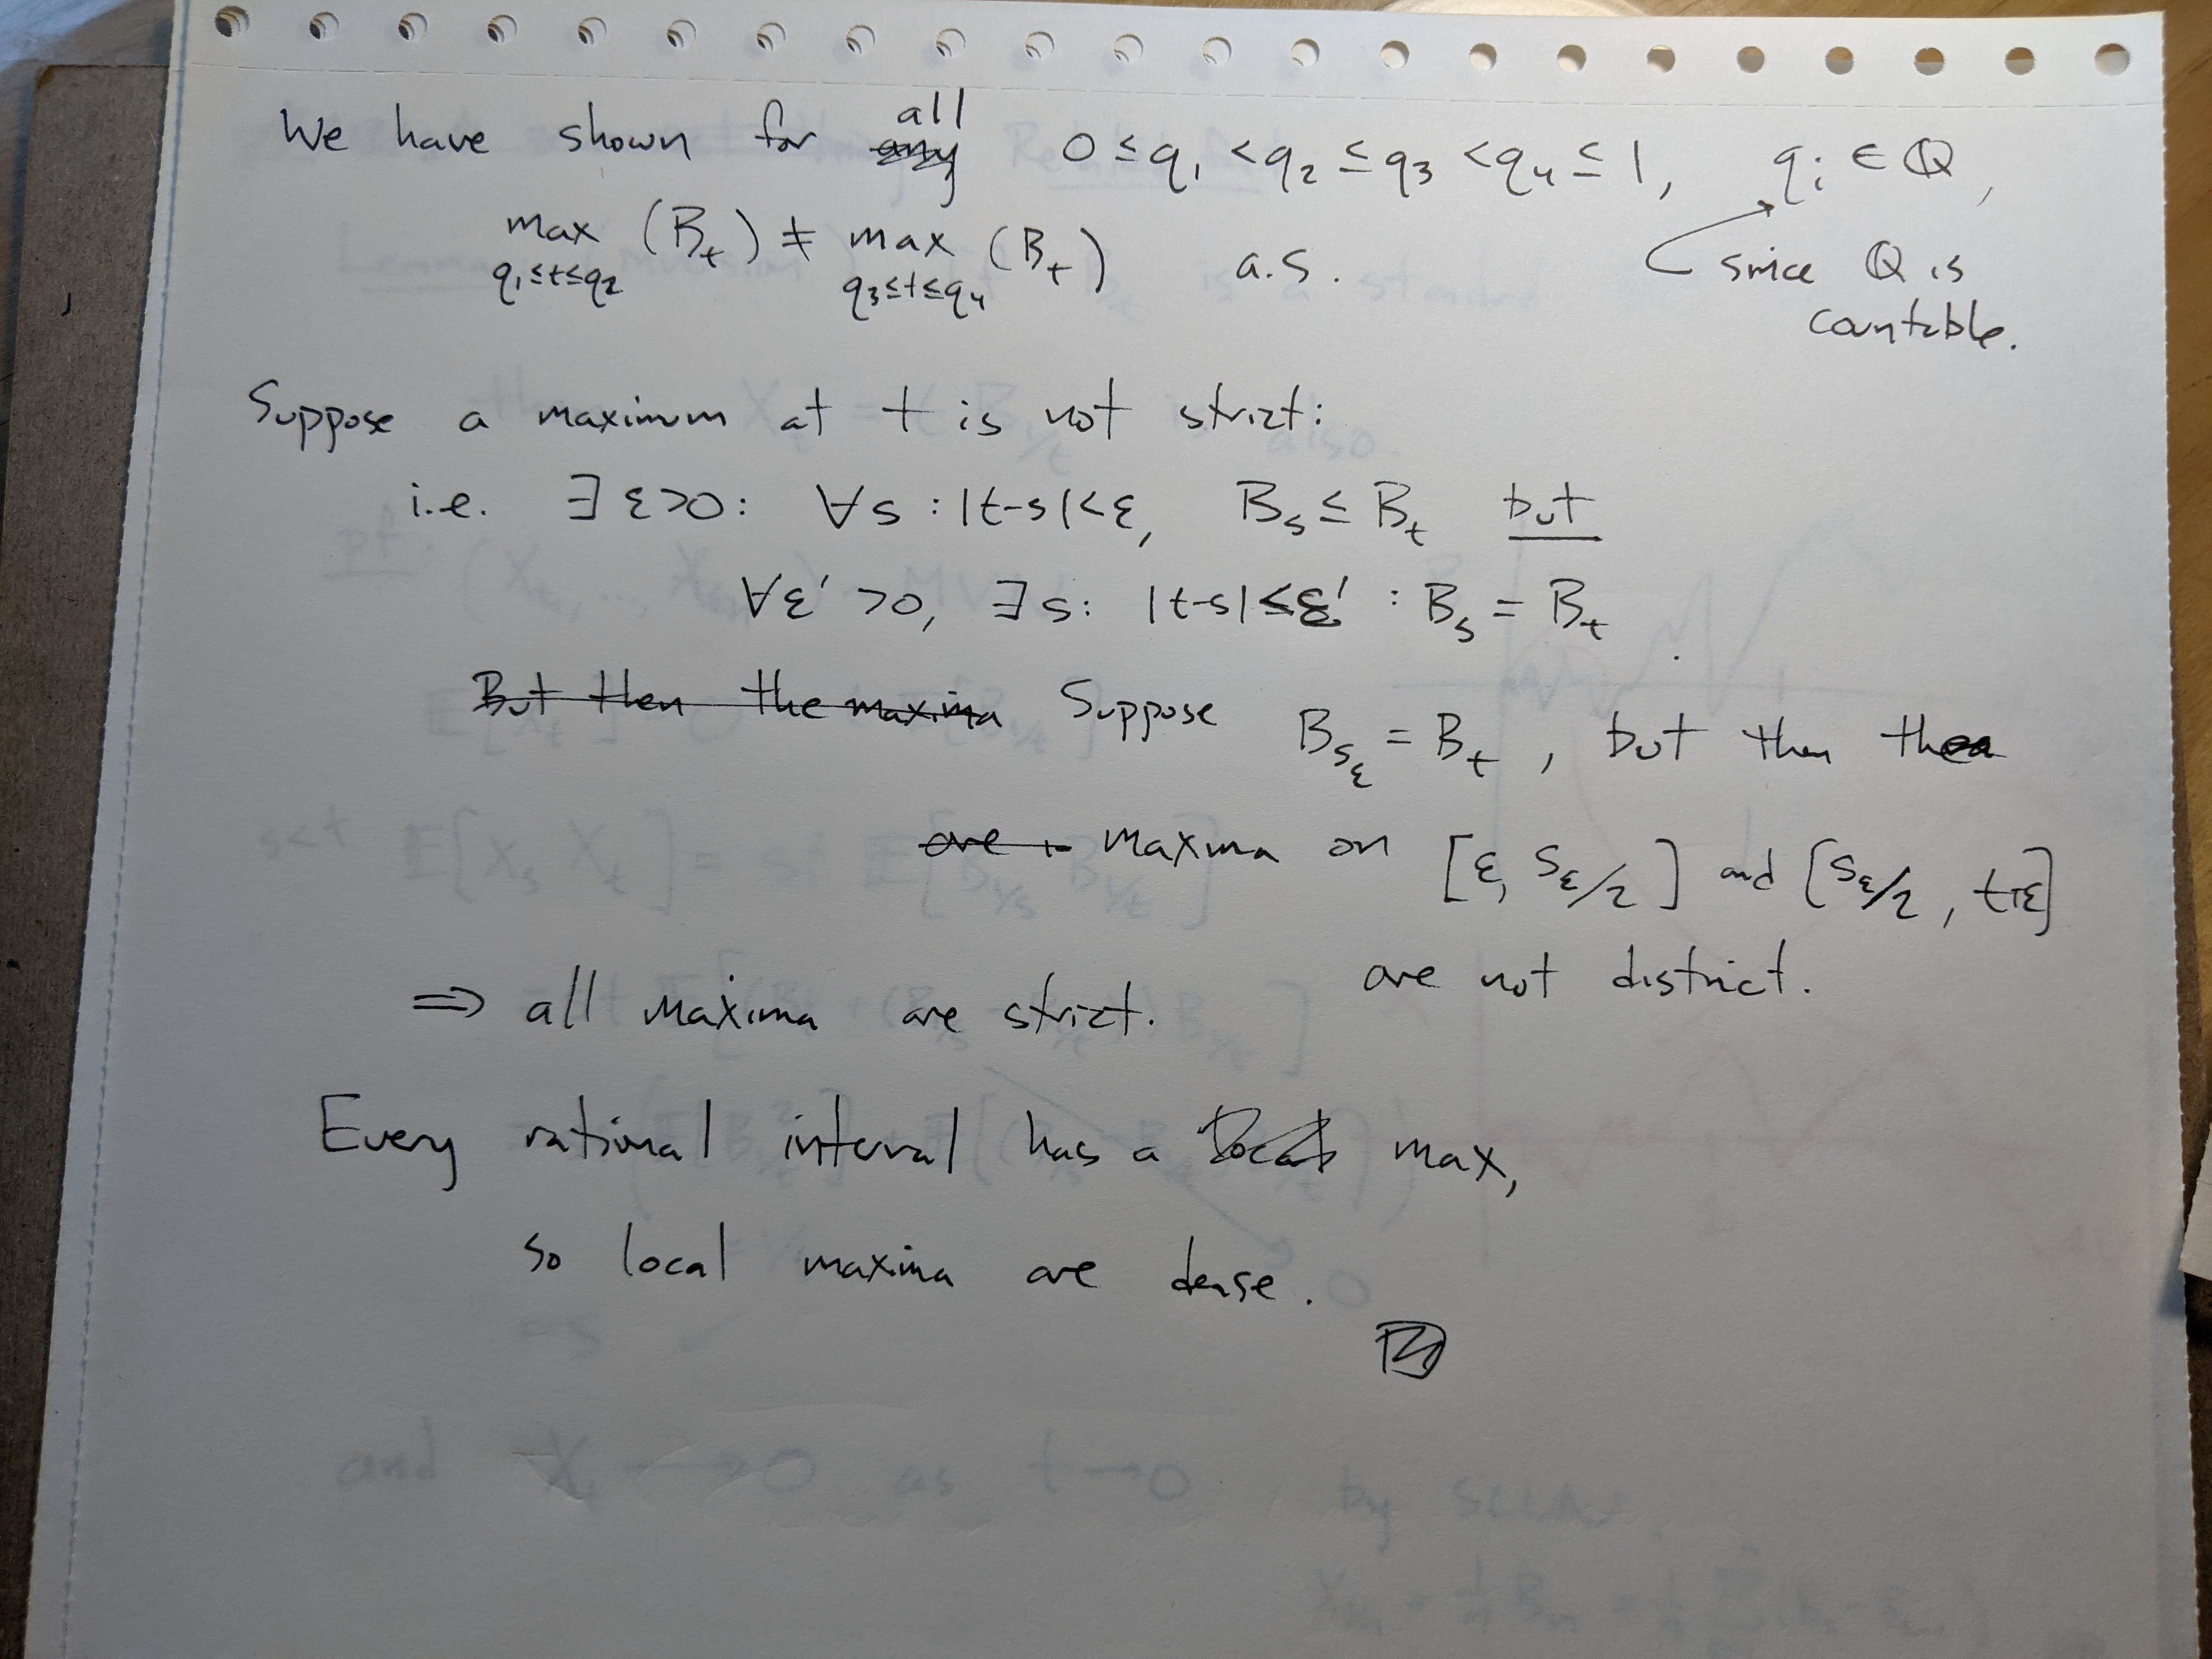 We have shown for any all 0 ≤ q₁ < q₂ ≤ q₃ < q₄ ≤ 1, qᵢ ∈ ℚ,
max (B_t) ≠ max (B_t) a.s.
q₁≤t≤q₂ q₃≤t≤q₄
since ℚ is
countable.
Suppose a maximum at t is not strict:
i.e. ∃ ε>0: ∀s : |t-s|<ε, B_s ≤ B_t but
∀ε' >0, ∃s: |t-s|≤ε' : B_s = B_t
But then the maxima Suppose B_{s_ε} = B_t, but then the
are maxima on [ε, s_ε/2] and [s_ε/2, t+ε]
are not distinct.
⇒ all maxima are strict.
Every rational interval has a local max,
so local maxima are dense.